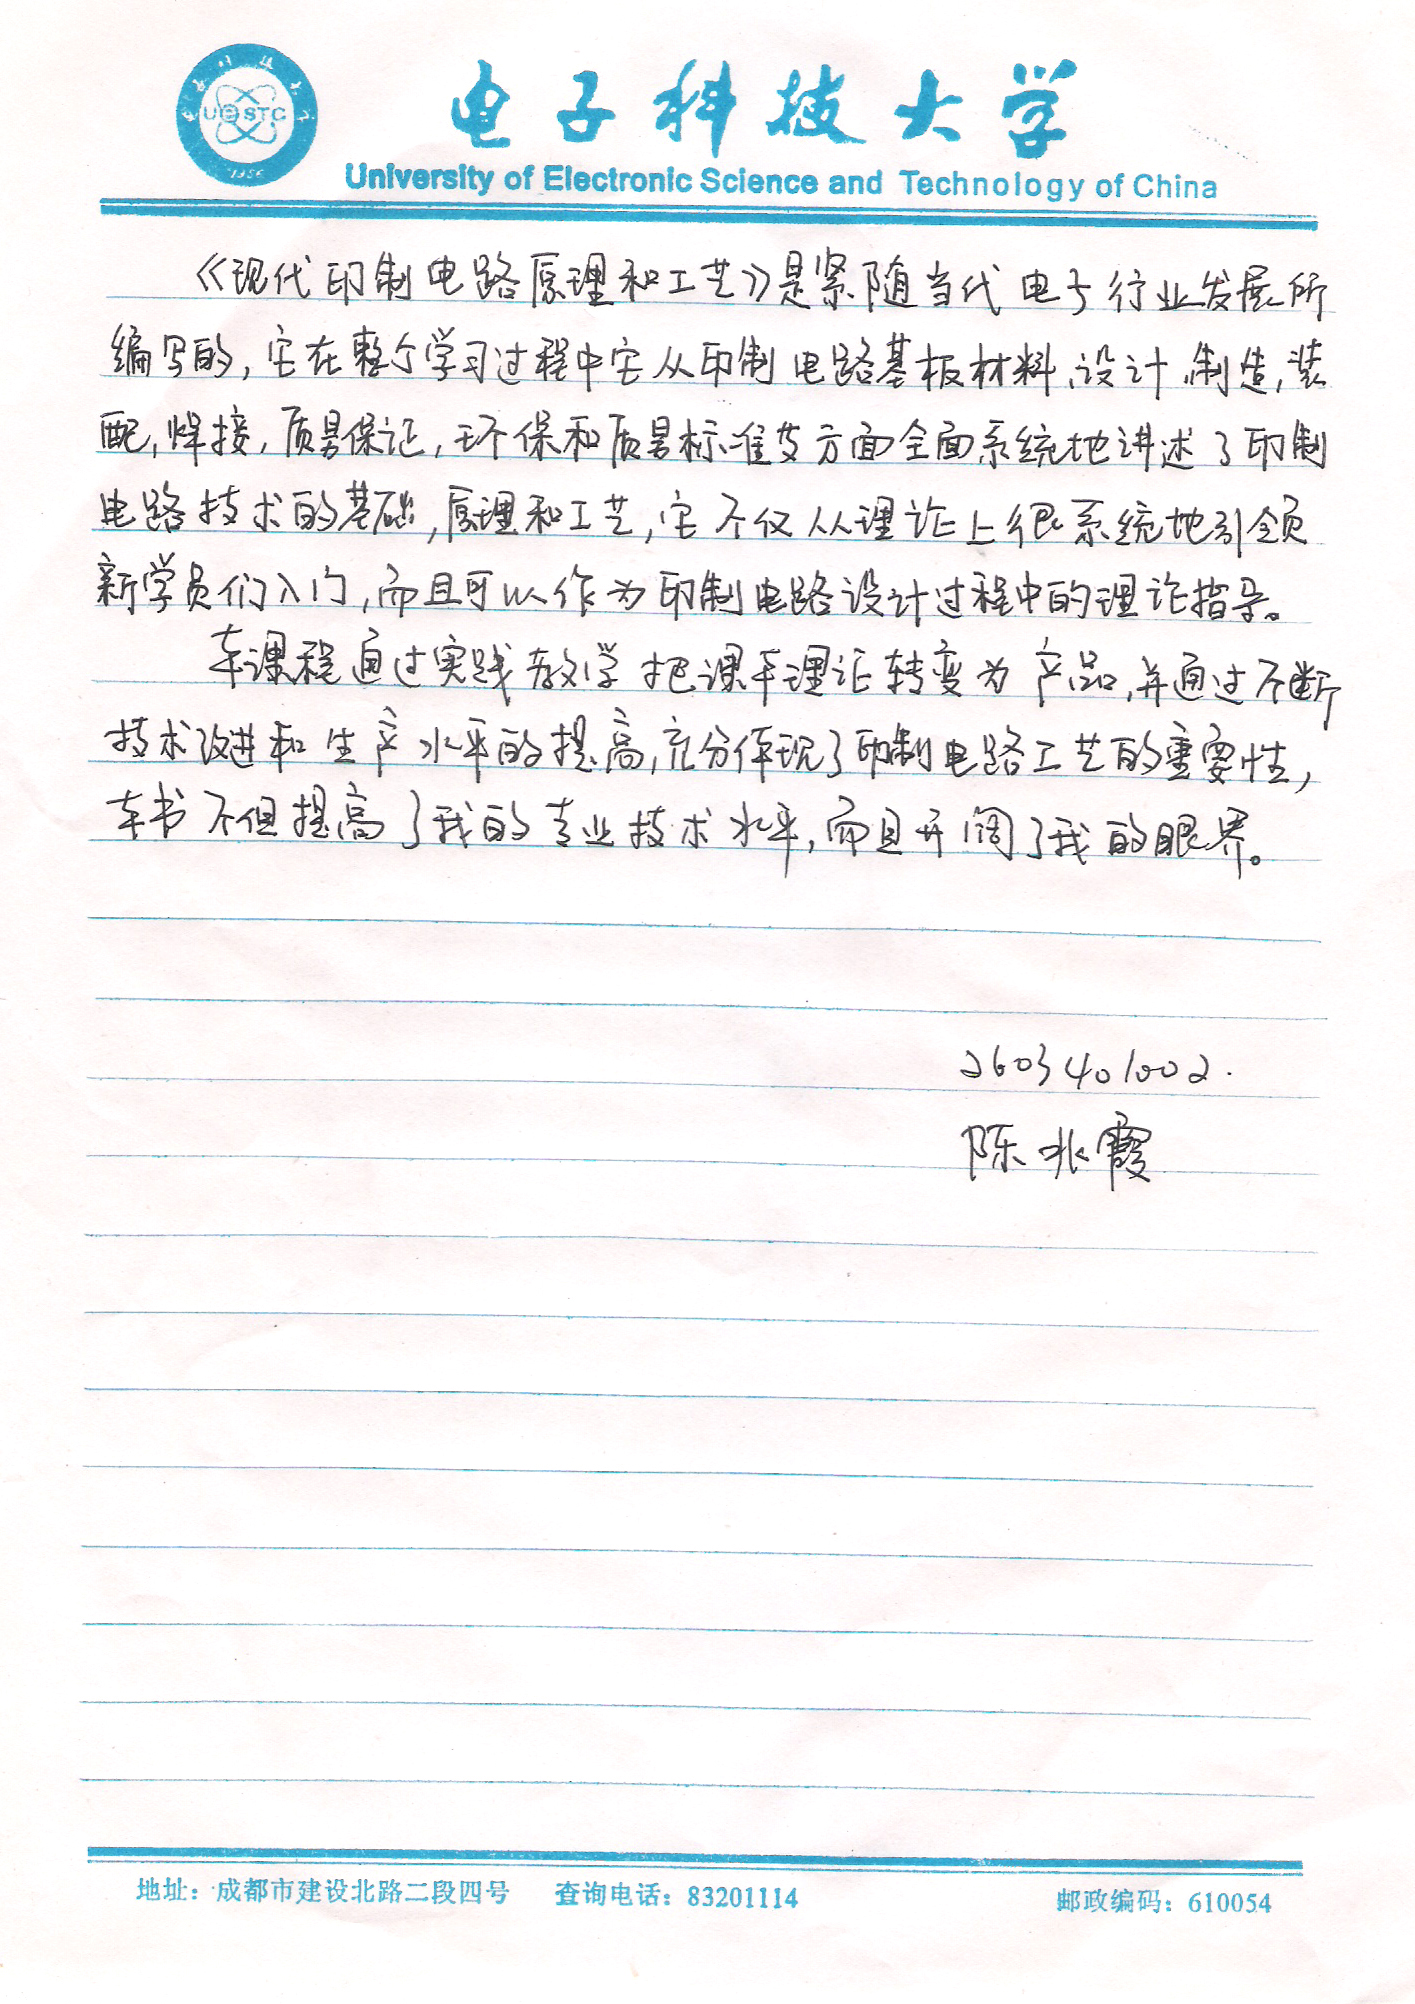 UESTC
1956
电子科技大学
University of Electronic Science and Technology of China
《现代印制电路原理和工艺》是紧随当代电子行业发展所
编写的,它在整个学习过程中它从印制电路基板材料、设计、制造,装
配,焊接,质量保证,环保和质量标准等方面全面系统地讲述了印制
电路技术的基础,原理和工艺,它不仅从理论上很系统地引领
新学员们入门,而且可以作为印制电路设计过程中的理论指导。
本课程通过实践教学把课本理论转变为产品,并通过不断
技术改进和生产水平的提高,充分体现了印制电路工艺的重要性,
本书不但提高了我的专业技术水平,而且开阔了我的眼界。
2603401002.
陈兆霞
地址:成都市建设北路二段四号 查询电话:83201114 邮政编码:610054